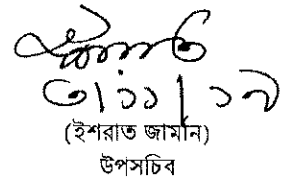 ৩/১১/১৭
(ইশরাত জামান)
উপসচিব